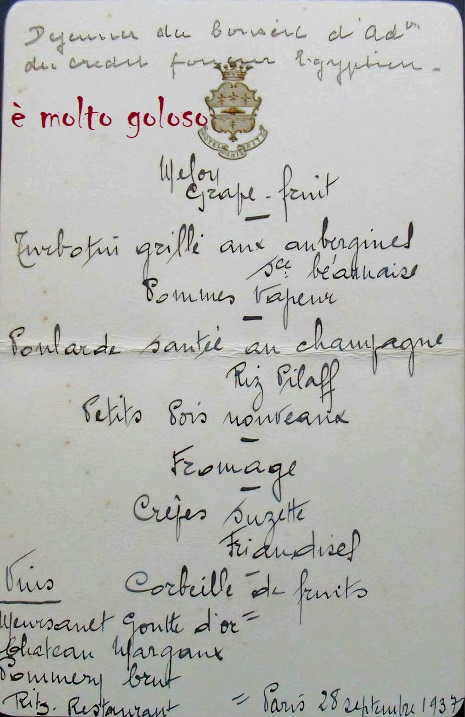 Dejeuner du Conseil d'Adon
du credit foncier Egyptien.
è molto goloso
HOTEL RITZ
Melon
Grape-fruit
Turbotin grillé aux aubergines
sce béarnaise
Pommes Vapeur
Poularde sautée au champagne
Riz Pilaff
Petits Pois nouveaux
Fromage
Crêpes Suzette
Friandises
Corbeille de fruits
Vins
Meursault Goutte d'or
Chateau Margaux
Pommery brut
Ritz-Restaurant = Paris 28 septembre 1937